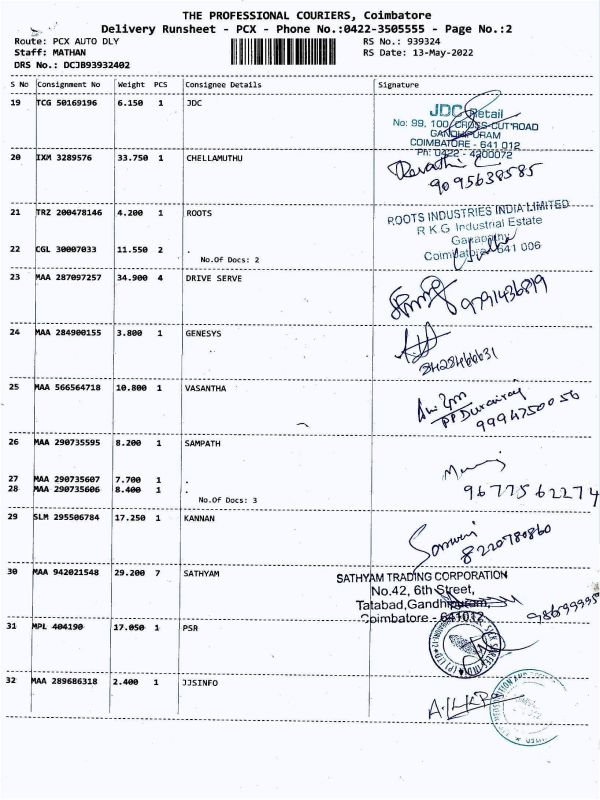 THE PROFESSIONAL COURIERS, Coimbatore
Delivery Runsheet - PCX - Phone No.:0422-3505555 - Page No.:2
Route: PCX AUTO DLY
RS No.: 939324
Staff: MATHAN
RS Date: 13-May-2022
DRS No.: DCJB93932402
S No Consignment No Weight PCS Consignee Details Signature
19 TCG 50169196 6.150 1 JDC
JDC Retail
No: 99, 100, CROSS-CUT ROAD
GANDHIPURAM
COIMBATORE - 641 012
Ph: 0422 - 4200072
20 IXM 3289576 33.750 1 CHELLAMUTHU
Revathi C
9095638585
21 TRZ 200478146 4.200 1 ROOTS
ROOTS INDUSTRIES INDIA LIMITED
R K G Industrial Estate
Ganapathy
Coimbatore - 641 006
22 CGL 30007033 11.550 2 .
No.Of Docs: 2
23 MAA 287097257 34.900 4 DRIVE SERVE
9791436819
24 MAA 284900155 3.800 1 GENESYS
25 MAA 566564718 10.800 1 VASANTHA
9994750056
26 MAA 290735595 8.200 1 SAMPATH
27 MAA 290735607 7.700 1 .
28 MAA 290735606 8.400 1 .
No.Of Docs: 3
9677562274
29 SLM 295506784 17.250 1 KANNAN
8220780860
30 MAA 942021548 29.200 7 SATHYAM
SATHYAM TRADING CORPORATION
No.42, 6th Street,
Tatabad,Gandhipuram,
Coimbatore - 641012
31 MPL 404190 17.050 1 PSR
32 MAA 289686318 2.400 1 JJSINFO